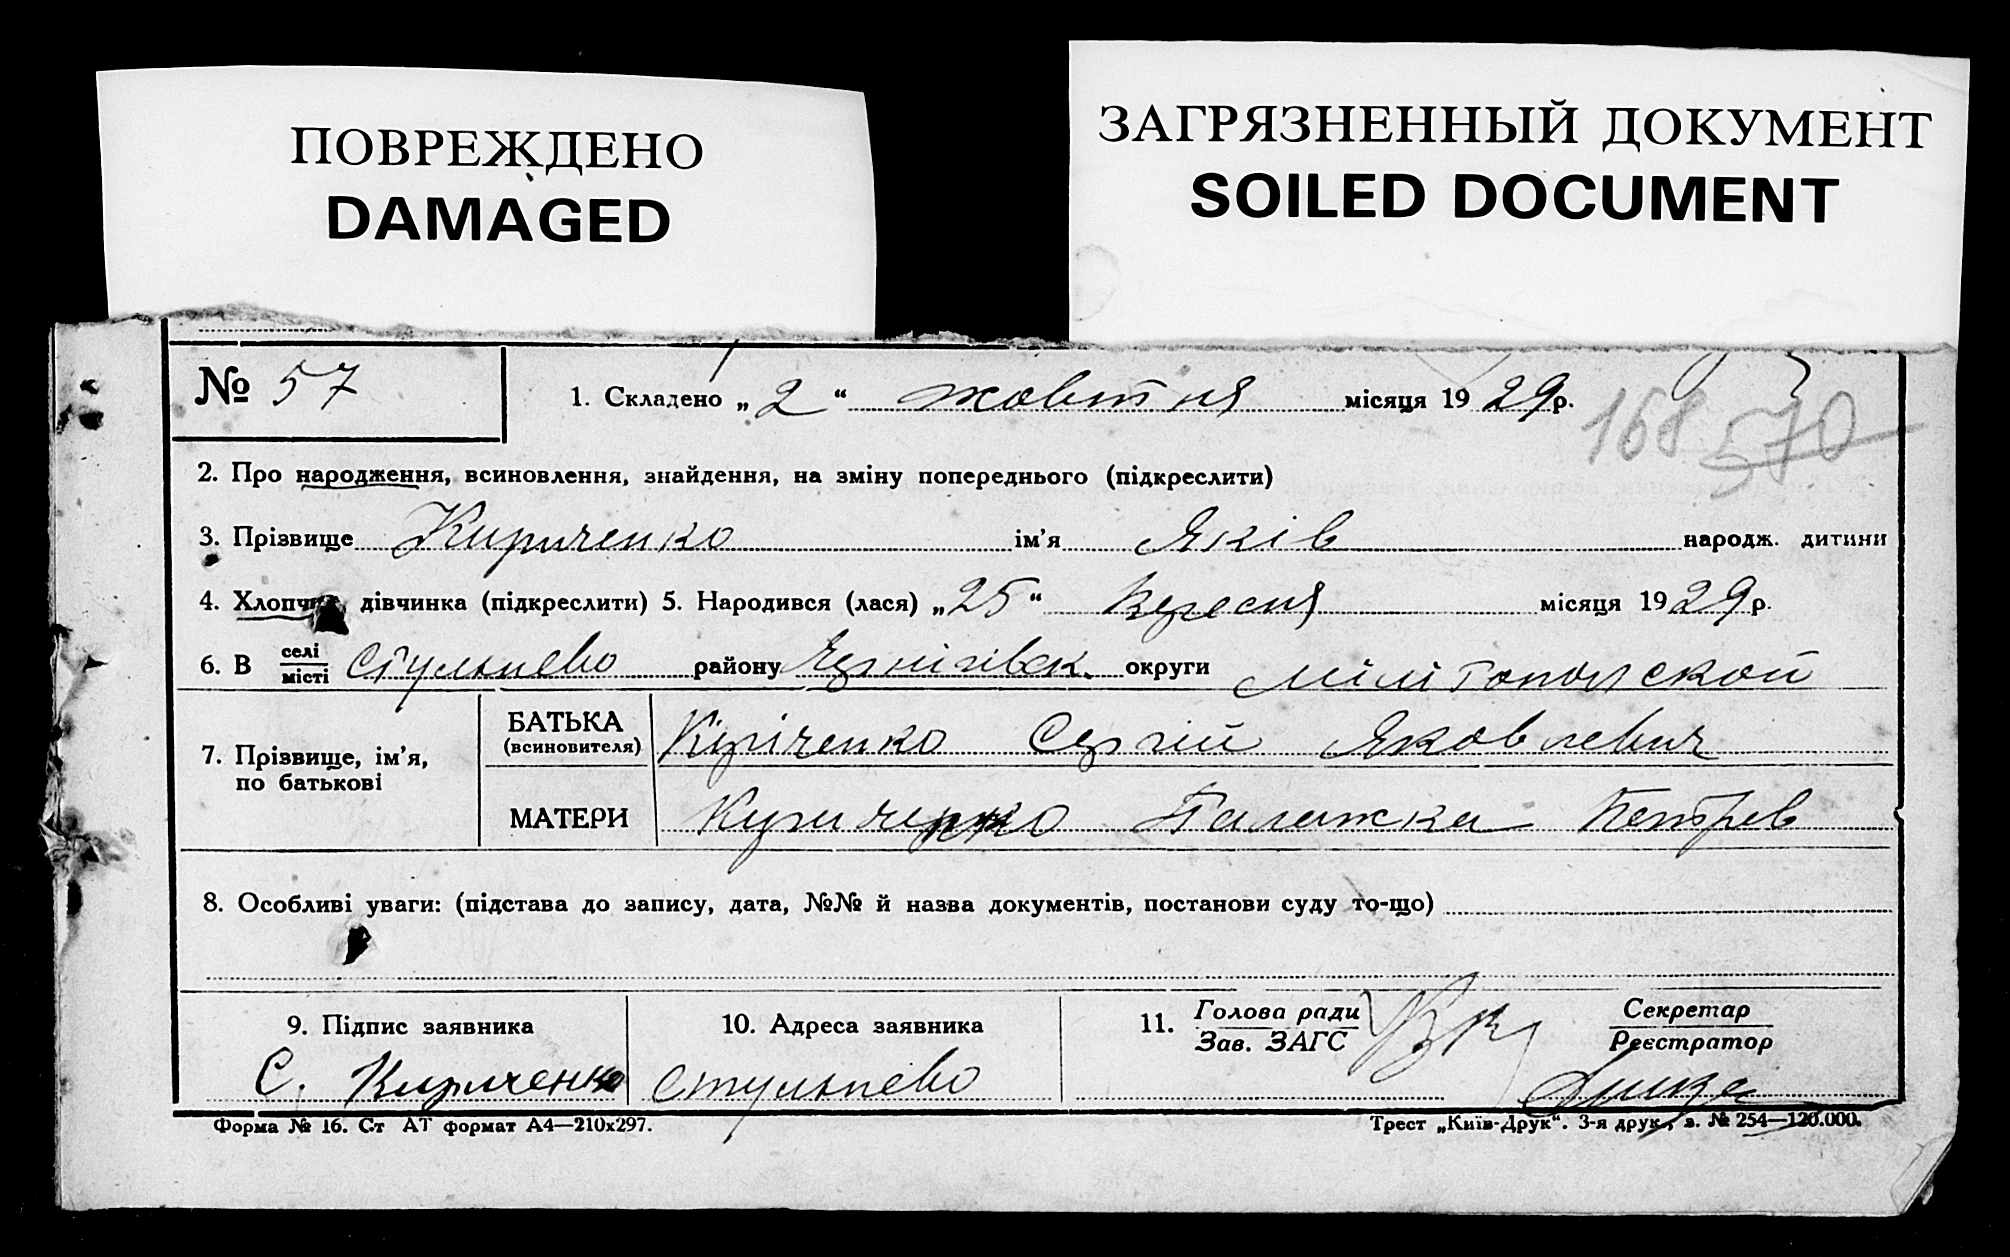 ПОВРЕЖДЕНО
DAMAGED
ЗАГРЯЗНЕННЫЙ ДОКУМЕНТ
SOILED DOCUMENT
№ 57
1. Складено „2“ жовтня місяця 1929р.
168 570
2. Про народження, всиновлення, знайдення, на зміну попереднього (підкреслити)
3. Прізвище Кириченко ім'я Яків народж. дитини
4. Хлопчик, дівчинка (підкреслити) 5. Народився (лася) „25“ Вересня місяця 1929р.
6. В селі/місті Стульнево району Чернігівськ. округи Мілітопольской
7. Прізвище, ім'я, по батькові
БАТЬКА (всиновителя) Кіріченко Сергій Яковлевич
МАТЕРИ Кириченко Палажка Петров
8. Особливі уваги: (підстава до запису, дата, №№ й назва документів, постанови суду то-що)
9. Підпис заявника
С. Кириченко
10. Адреса заявника
Стульнево
11. Голова ради/Зав. ЗАГС
Секретар/Реєстратор
Форма № 16. Ст АТ формат А4—210х297.
Трест „Київ-Друк“. 3-я друк., з. № 254—120.000.